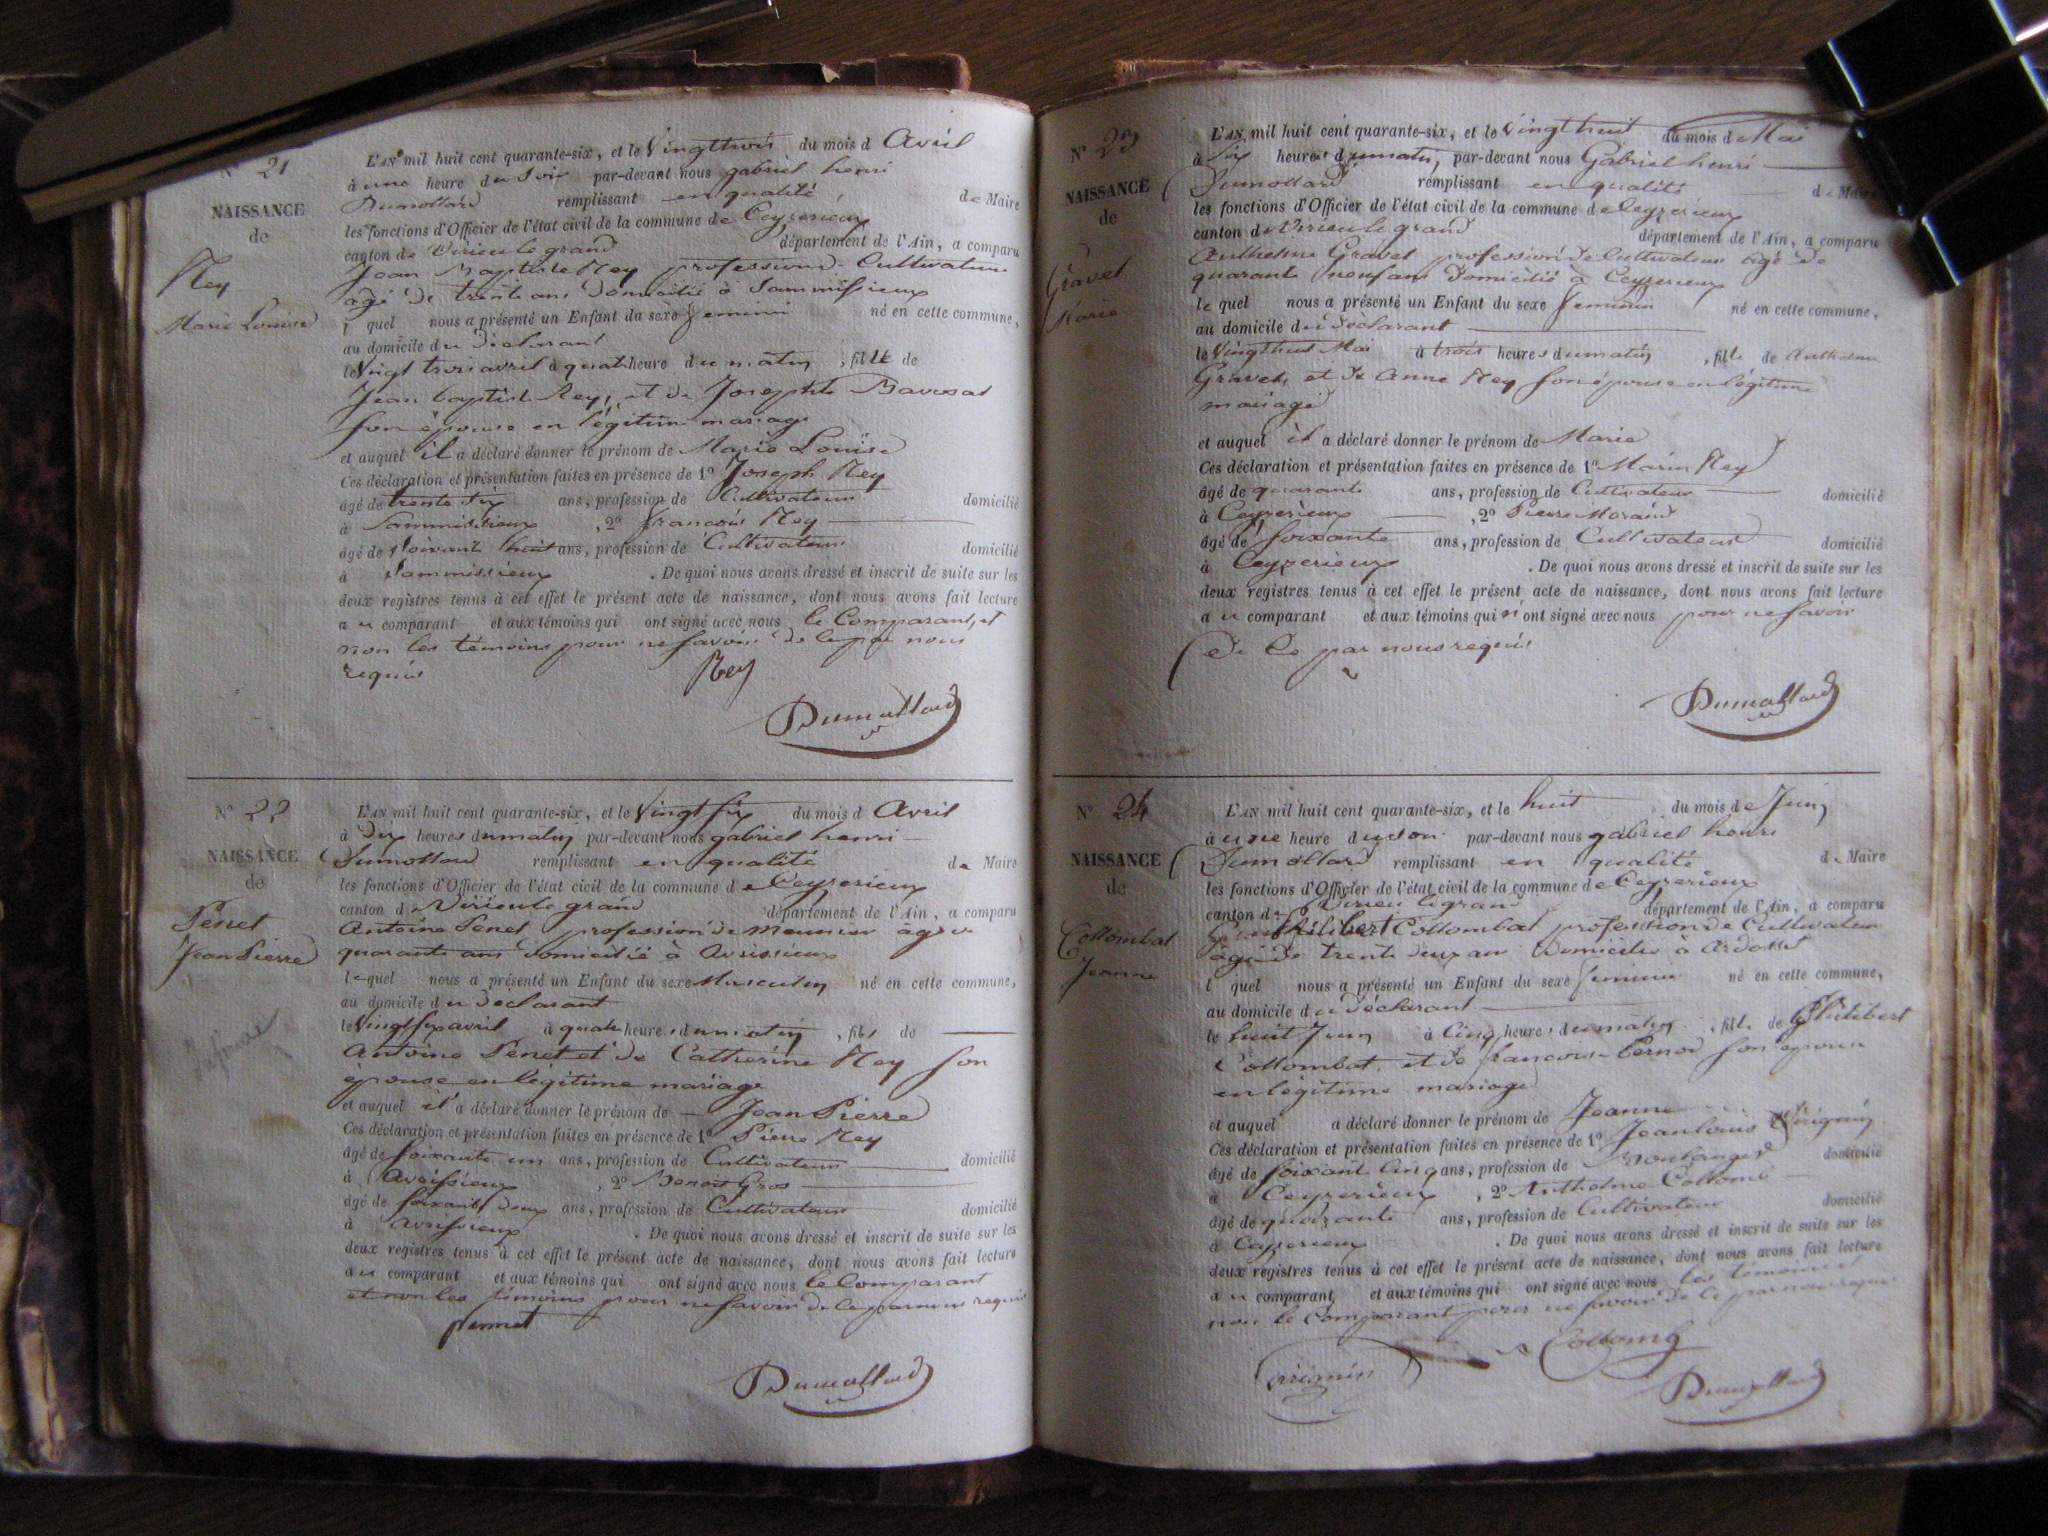 N° 21
NAISSANCE
de
Rey
Marie Louise
L'AN mil huit cent quarante-six, et le Vingttrois du mois d Avril
à une heure du Soir par-devant nous gabriel henri
Dumollard remplissant en qualité de Maire
les fonctions d'Officier de l'état civil de la commune de Ceyzerieux
canton de Virieu le grand département de l'Ain, a comparu
Jean Baptiste Rey profession de Cultivateur
âgé de trente ans domicilié à Sammissieux
l quel nous a présenté un Enfant du sexe feminin né en cette commune,
au domicile du Déclarant
le Vingt trois avril à quatre heure du matin, fille de
Jean baptiste Rey, et de Josephte Bavosat
son épouse en légitime mariage
et auquel il a déclaré donner le prénom de Marie Louise
Ces déclaration et présentation faites en présence de 1° Joseph Rey
âgé de trente six ans, profession de Cultivateur domicilié
à Sammissieux, 2° francois Rey
âgé de soixante huit ans, profession de Cultivateur domicilié
à Sammissieux. De quoi nous avons dressé et inscrit de suite sur les
deux registres tenus à cet effet le présent acte de naissance, dont nous avons fait lecture
au comparant et aux témoins qui ont signé avec nous le Comparant, et
non les témoins pour ne savoir de ce par nous
requis
Rey
Dumollard
N° 22
NAISSANCE
de
Penet
Jean Pierre
L'AN mil huit cent quarante-six, et le Vingt six du mois d Avril
à dix heures du matin par-devant nous gabriel henri
Dumollard remplissant en qualité de Maire
les fonctions d'Officier de l'état civil de la commune de Ceyzerieux
canton de Virieu le grand département de l'Ain, a comparu
Antoine Penet profession de Meunier agé de
quarante ans domicilié à Avrissieux
lequel nous a présenté un Enfant du sexe Masculin né en cette commune,
au domicile du Déclarant
le Vingt six avril à quatre heures du matin, fils de
Antoine Penet et de Catherine Rey son
épouse en légitime mariage
et auquel il a déclaré donner le prénom de Jean Pierre
Ces déclaration et présentation faites en présence de 1° Pierre Rey
âgé de soixante un ans, profession de Cultivateur domicilié
à Avrissieux, 2° Benoit Gros
âgé de soixante deux ans, profession de Cultivateur domicilié
à avrissieux. De quoi nous avons dressé et inscrit de suite sur les
deux registres tenus à cet effet le présent acte de naissance, dont nous avons fait lecture
au comparant et aux témoins qui ont signé avec nous le Comparant
et non les témoins pour ne savoir de ce par nous requis
pennet
Dumollard
N° 23
NAISSANCE
de
Gravet
Marie
L'AN mil huit cent quarante-six, et le Vingt huit du mois de Mai
à Six heures du matin, par-devant nous Gabriel henri
Dumollard remplissant en qualité de Maire
les fonctions d'Officier de l'état civil de la commune de Ceyzerieux
canton de Virieu le grand département de l'Ain, a comparu
Anthelme Gravet profession de Cultivateur agé de
quarante neuf ans Domicilié à Ceyzerieux
le quel nous a présenté un Enfant du sexe feminin né en cette commune,
au domicile du déclarant
le Vingthuit Mai à trois heures du matin, fille de Anthelme
Gravet, et de Anne Rey son épouse en légitime
mariage
et auquel il a déclaré donner le prénom de Marie
Ces déclaration et présentation faites en présence de 1° Marin Rey
âgé de quarante ans, profession de Cultivateur domicilié
à Ceyzerieux, 2° Pierre Morand
âgé de soixante ans, profession de Cultivateur domicilié
à Ceyzerieux. De quoi nous avons dressé et inscrit de suite sur les
deux registres tenus à cet effet le présent acte de naissance, dont nous avons fait lecture
au comparant et aux témoins qui n'ont signé avec nous pour ne savoir
de ce par nous requis
Dumollard
N° 24
NAISSANCE
de
Collombat
Jeanne
L'AN mil huit cent quarante-six, et le huit du mois de Juin
à une heure du soir par-devant nous gabriel henri
Dumollard remplissant en qualité de Maire
les fonctions d'Officier de l'état civil de la commune de Ceyzerieux
canton de Virieu le grand département de l'Ain, a comparu
Philibert Collombat profession de Cultivateur
âgé de trente deux ans Domicilié à Ardosset
l quel nous a présenté un Enfant du sexe feminin né en cette commune,
au domicile du déclarant
le huit Juin à Cinq heures du matin, fille de Philibert
Collombat, et de francoise Bernod son épouse
en légitime mariage
et auquel a déclaré donner le prénom de Jeanne
Ces déclaration et présentation faites en présence de 1° Jean louis
âgé de soixante cinq ans, profession de Boulanger domicilié
à Ceyzerieux, 2° Anthelme Collomb
âgé de quarante ans, profession de Cultivateur domicilié
à Ceyzerieux. De quoi nous avons dressé et inscrit de suite sur les
deux registres tenus à cet effet le présent acte de naissance, dont nous avons fait lecture
au comparant et aux témoins qui ont signé avec nous les témoins et
non le Comparant pour ne savoir de ce par nous requis
Collomb
Dumollard